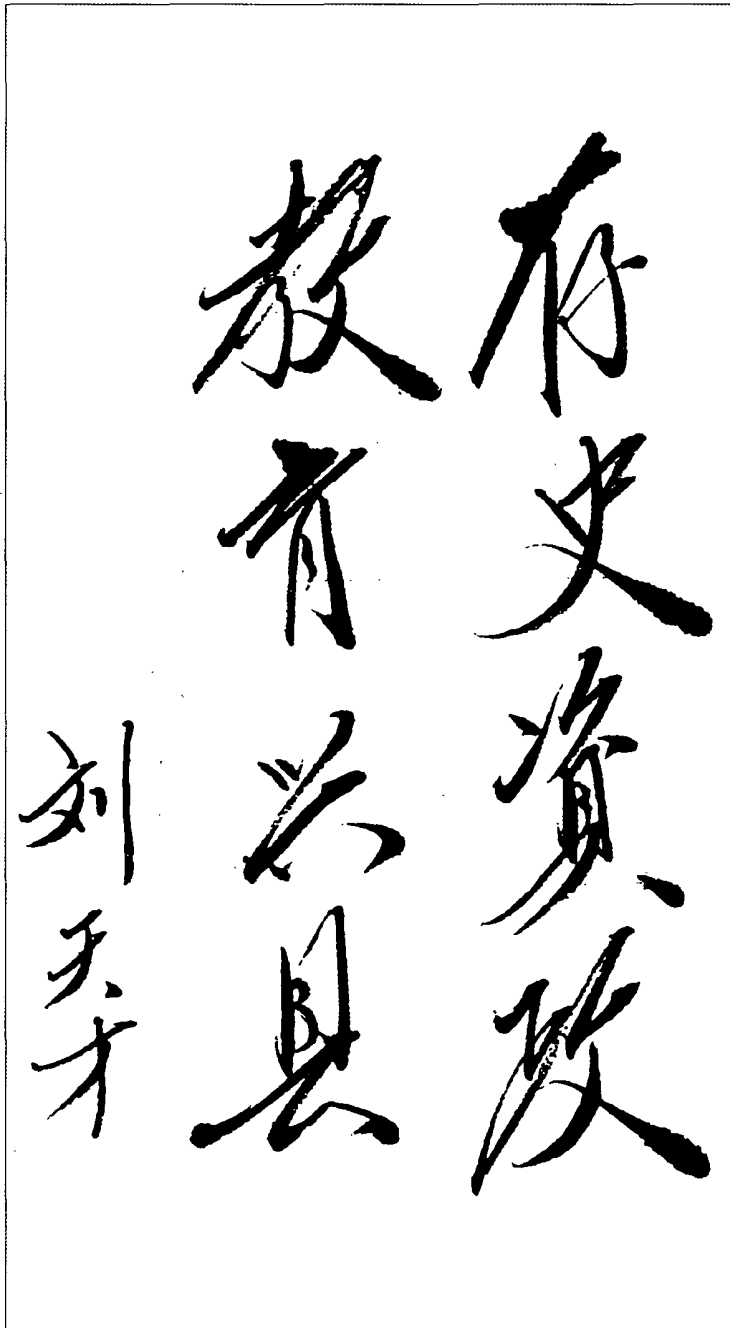 存史资政
教育兴县
刘天才